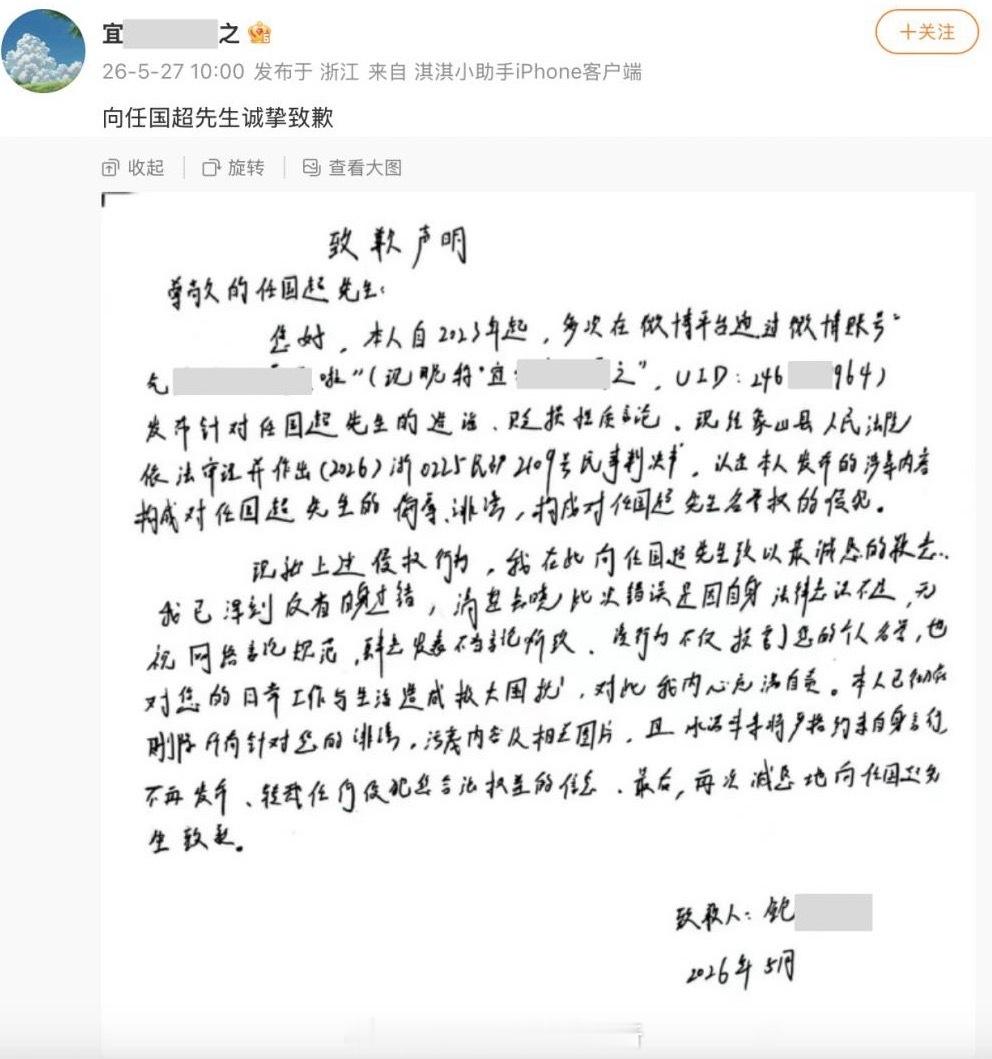 宜 之
+关注
26-5-27 10:00 发布于 浙江 来自 淇淇小助手iPhone客户端
向任国超先生诚挚致歉
收起 旋转 查看大图
致歉声明
尊敬的任国超先生:
您好,本人自2023年起,多次在微博平台通过微博账号“
啦”(现昵称“宜 之”,UID:246 964)
发布针对任国超先生的造谣、贬损性质言论。现经象山县人民法院
依法审理并作出(2026)浙0225民初2109号民事判决书,认定本人发布的涉案内容
构成对任国超先生的侮辱、诽谤,构成对任国超先生名誉权的侵犯。
现就上述侵权行为,我在此向任国超先生致以最诚恳的歉意。
我已深刻反省自身过错,清楚知晓此次错误是因自身法律意识不足,无
视网络言论规范,肆意发表不当言论所致。该行为不仅损害了您的个人名誉,也
对您的日常工作与生活造成极大困扰,对此我内心充满自责。本人已彻底
删除所有针对您的诽谤,污蔑内容及相关图片,且承诺未来将严格约束自身言行
不再发布、转载任何侵犯您合法权益的信息。最后,再次诚恳地向任国超先
生致歉。
致歉人:
2026年5月